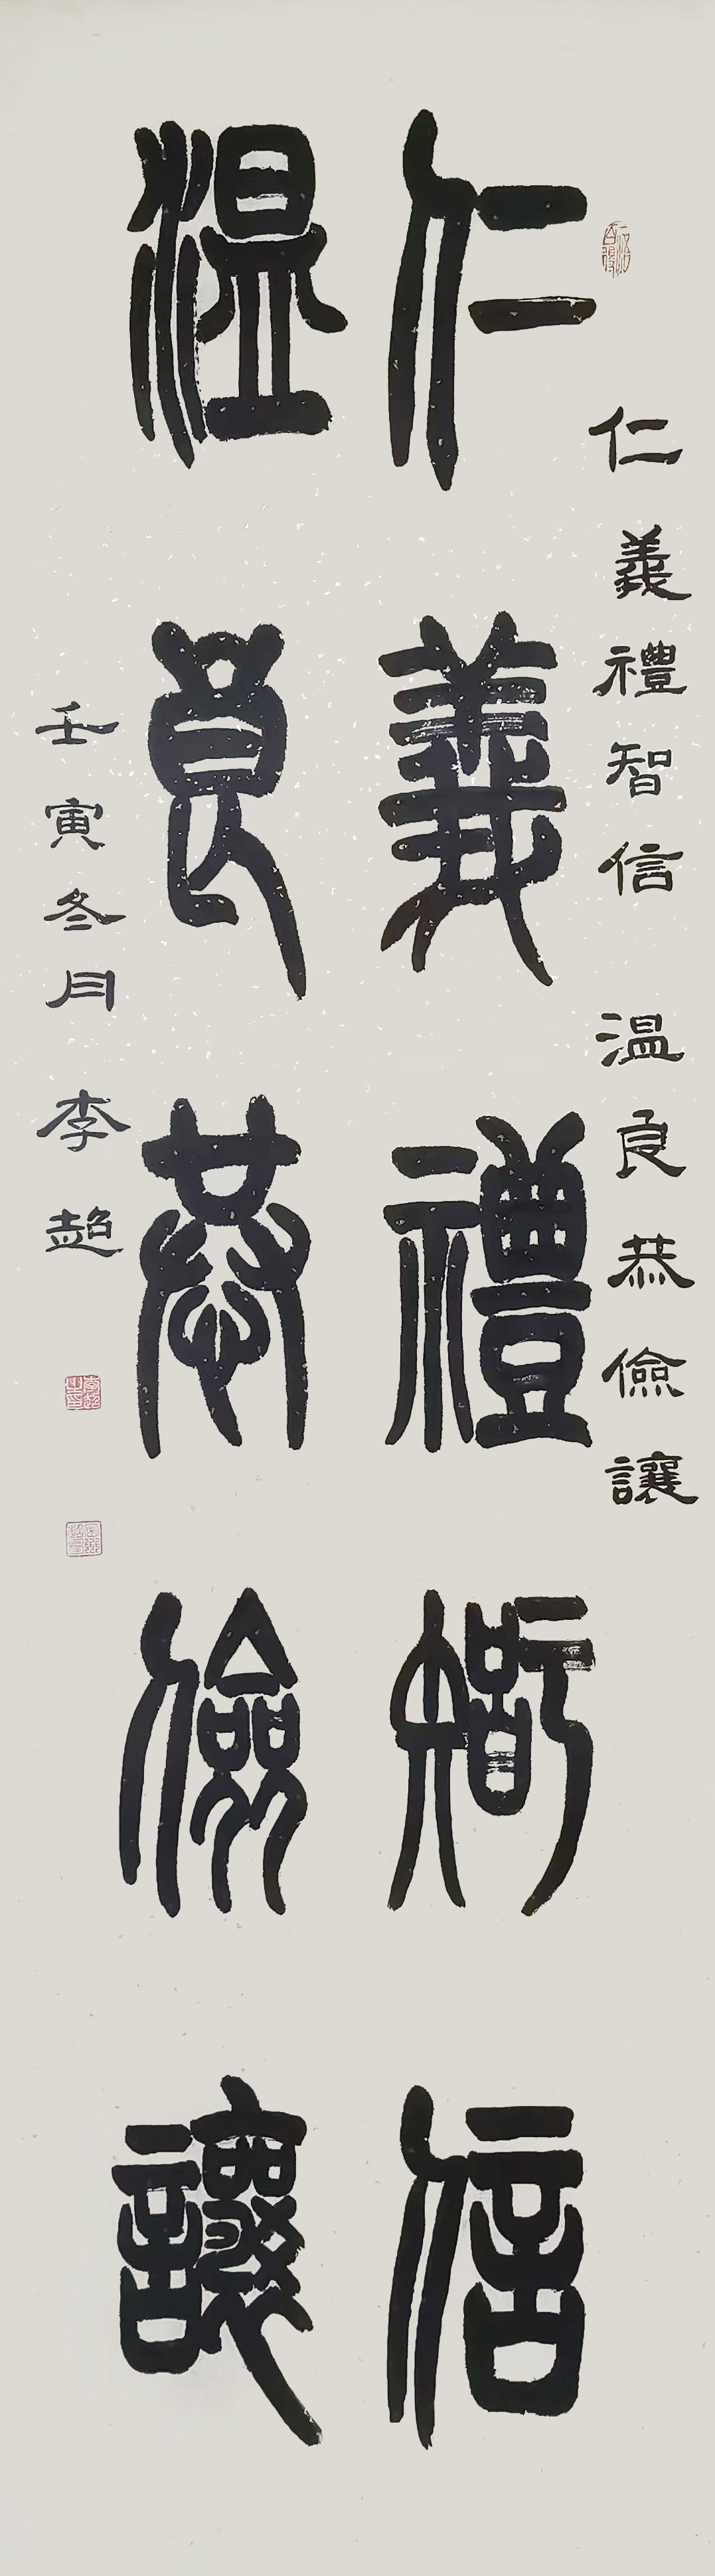 仁義禮智信
温良恭儉讓
仁義禮智信 温良恭儉讓
壬寅冬月 李超
李超之印